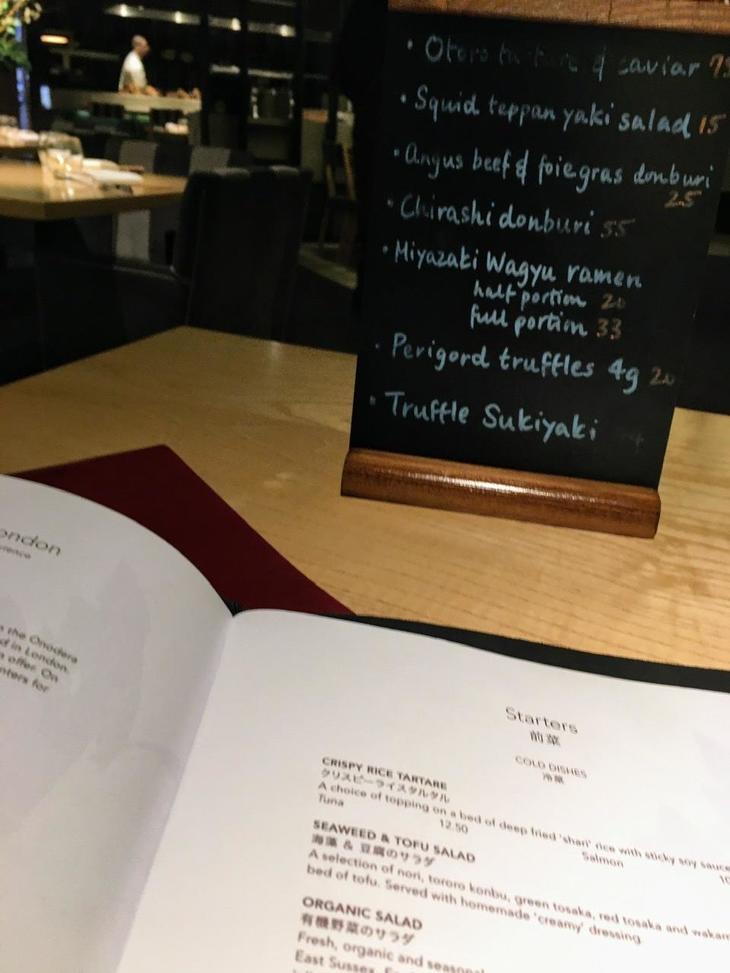 & caviar
• Squid teppan yaki salad 15
• Angus beef & foiegras donburi
25
• Chirashi donburi 55
• Miyazaki Wagyu ramen
half portion 20
full portion 33
• Perigord truffles 4g 20
• Truffle Sukiyaki
London
the Onodera
in London.
offer. On
for
Starters
前菜
COLD DISHES
冷菜
CRISPY RICE TARTARE
クリスピーライスタルタル
A choice of topping on a bed of deep fried 'shari' rice with sticky soy sauce
Tuna 12.50 Salmon
SEAWEED & TOFU SALAD
海藻 & 豆腐のサラダ
A selection of nori, tororo konbu, green tosaka, red tosaka and
bed of tofu. Served with homemade 'creamy' dressing
ORGANIC SALAD
有機野菜のサラダ
Fresh, organic and
East Sussex.